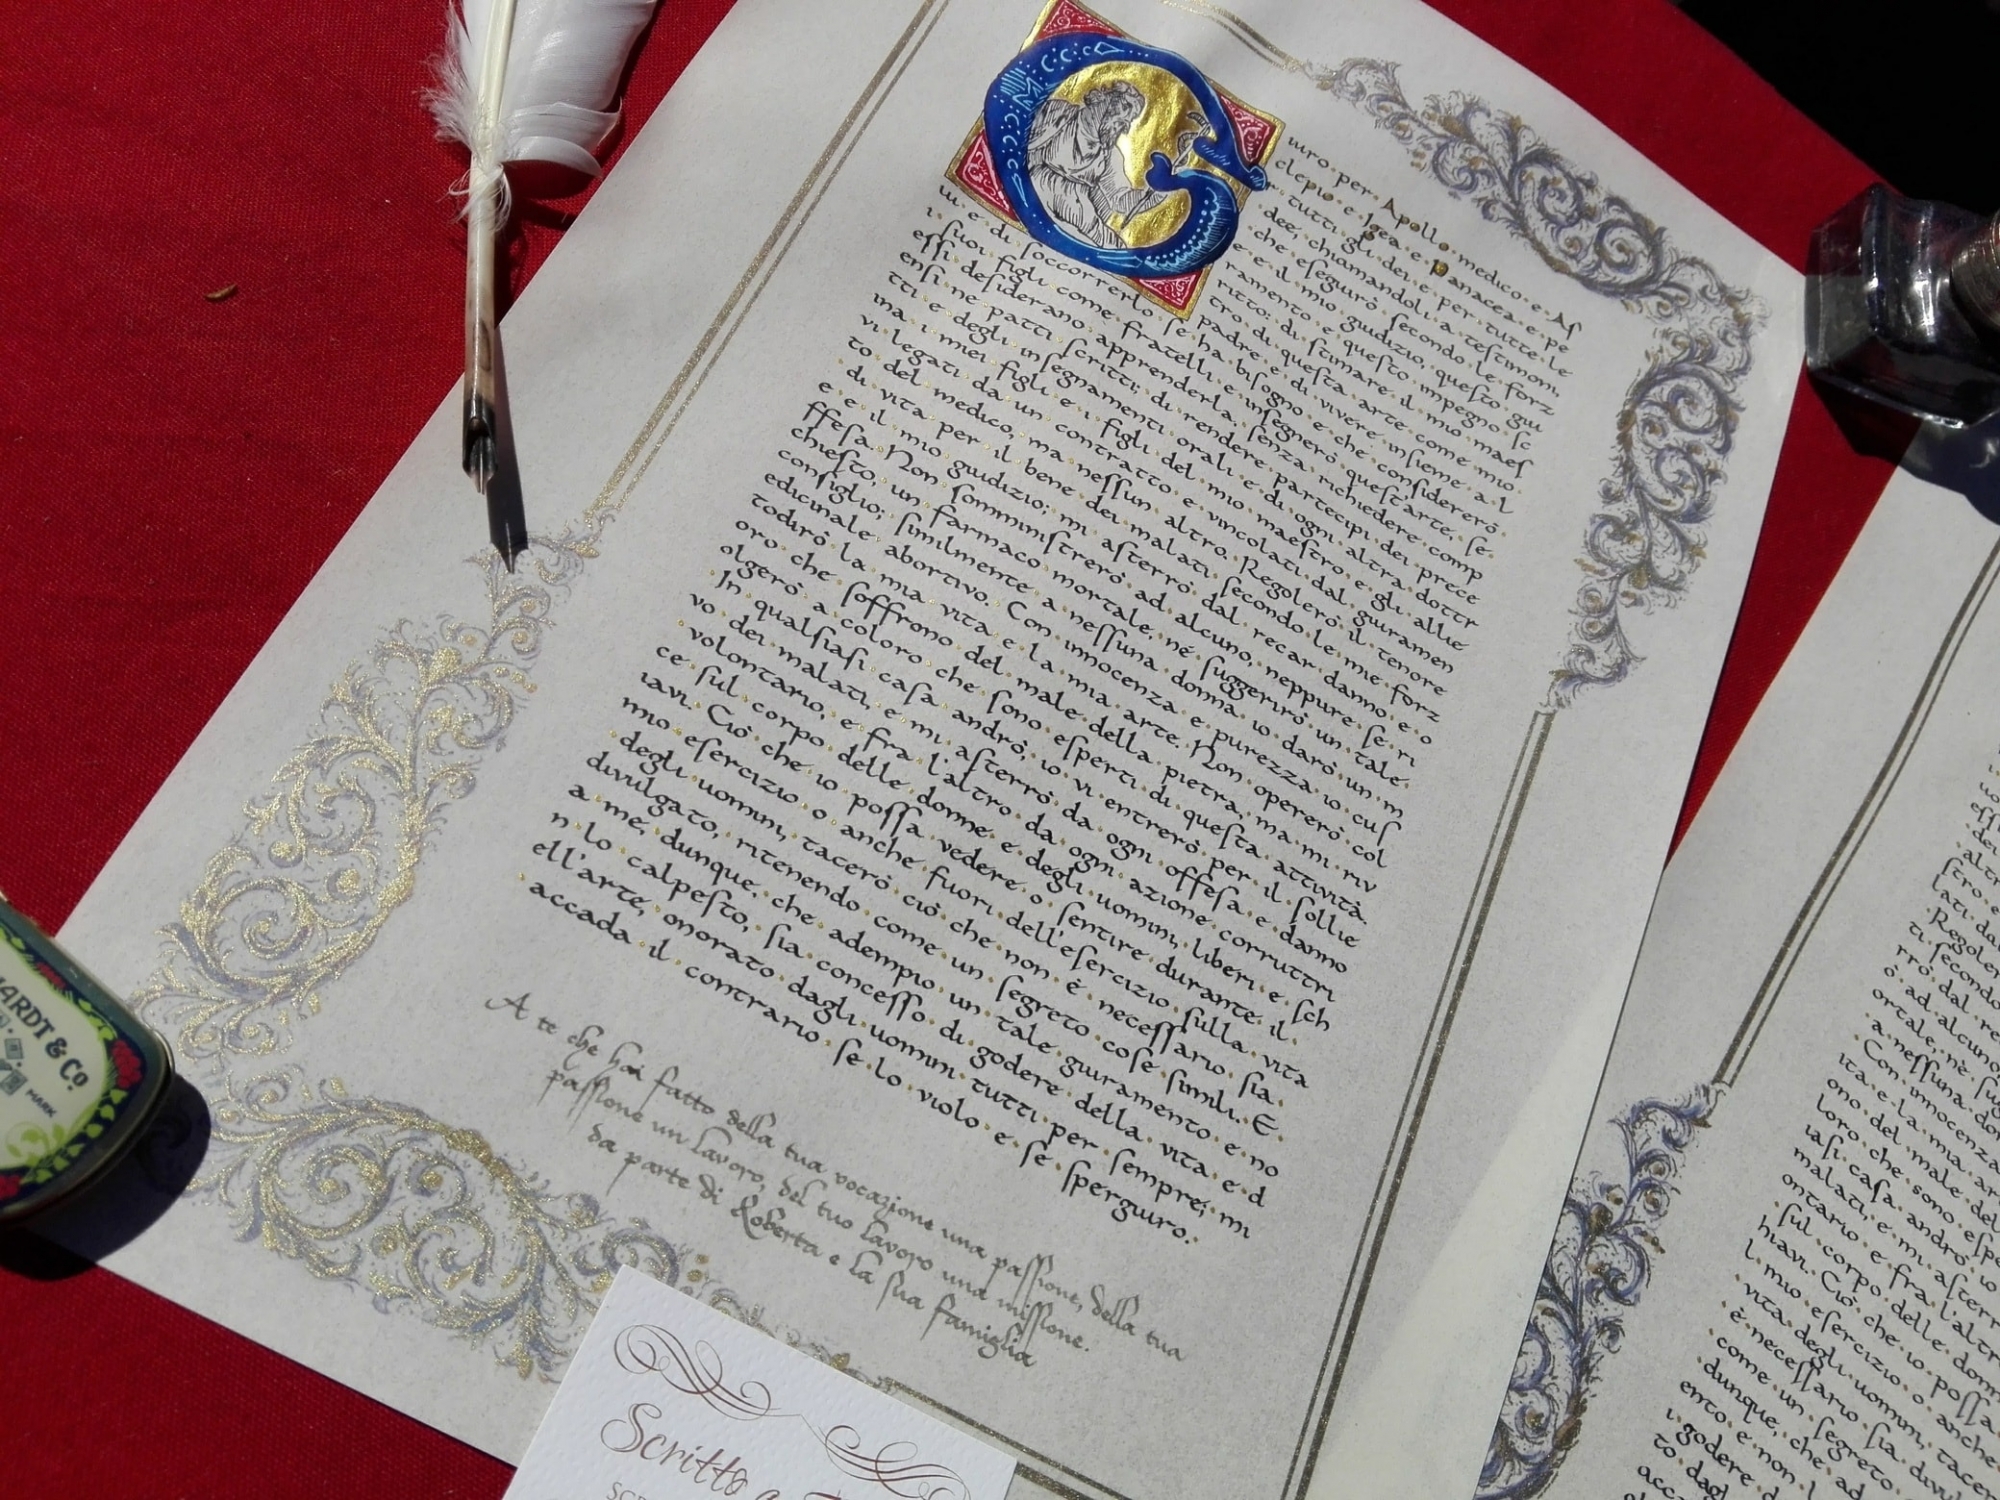 Giuro · per · Apollo · medico · e · As
clepio · e · Igea · e · Panacea · e · pe
r · tutti · gli · dei · e · per · tutte · le
dee, · chiamandoli · a · testimoni,
che · eseguirò · secondo · le · forz
e · e · il · mio · giudizio, · questo · giu
ramento · e · questo · impegno · sc
ritto: · di · stimare · il · mio · maes
tro · di · questa · arte · come · mio ·
padre · e · di · vivere · insieme · a · l
ui · e · di · soccorrerlo · se · ha · bisogno · e · che · considererò ·
i · suoi · figli · come · fratelli · e · insegnerò · quest'arte, · se ·
essi · desiderano · apprenderla, · senza · richiedere · comp
ensi · ne · patti · scritti; · di · rendere · partecipi · dei · prece
tti · e · degli · insegnamenti · orali · e · di · ogni · altra · dottr
ina · i · miei · figli · e · i · figli · del · mio · maestro · e · gli · allie
vi · legati · da · un · contratto · e · vincolati · dal · giuramen
to · del · medico, · ma · nessun · altro. · Regolerò · il · tenore
di · vita · per · il · bene · dei · malati · secondo · le · mie · forz
e · e · il · mio · giudizio; · mi · asterrò · dal · recar · danno · e · o
ffesa. · Non · somministrerò · ad · alcuno, · neppure · se · ri
chiesto, · un · farmaco · mortale, · né · suggerirò · un · tale ·
consiglio; · similmente · a · nessuna · donna · io · darò · un · m
edicinale · abortivo. · Con · innocenza · e · purezza · io · cus
todirò · la · mia · vita · e · la · mia · arte. · Non · opererò · col
oro · che · soffrono · del · male · della · pietra, · ma · mi · riv
olgerò · a · coloro · che · sono · esperti · di · questa · attività.
In · qualsiasi · casa · andrò, · io · vi · entrerò · per · il · sollie
vo · dei · malati, · e · mi · asterrò · da · ogni · offesa · e · danno
volontario, · e · fra · l'altro · da · ogni · azione · corruttri
ce · sul · corpo · delle · donne · e · degli · uomini, · liberi · e · sch
iavi. · Ciò · che · io · possa · vedere · o · sentire · durante · il ·
mio · esercizio · o · anche · fuori · dell'esercizio · sulla · vita
degli · uomini, · tacerò · ciò · che · non · è · necessario · sia ·
divulgato, · ritenendo · come · un · segreto · cose · simili. · E ·
a · me, · dunque, · che · adempio · un · tale · giuramento · e · no
n · lo · calpesto, · sia · concesso · di · godere · della · vita · e · d
ell'arte, · onorato · dagli · uomini · tutti · per · sempre; · mi
accada · il · contrario · se · lo · violo · e · se · spergiuro.
A te che hai fatto della tua vocazione una passione, della tua
passione un lavoro, del tuo lavoro una missione.
da parte di Roberta e la sua famiglia
Scritto a
ARDT & Co
MARK